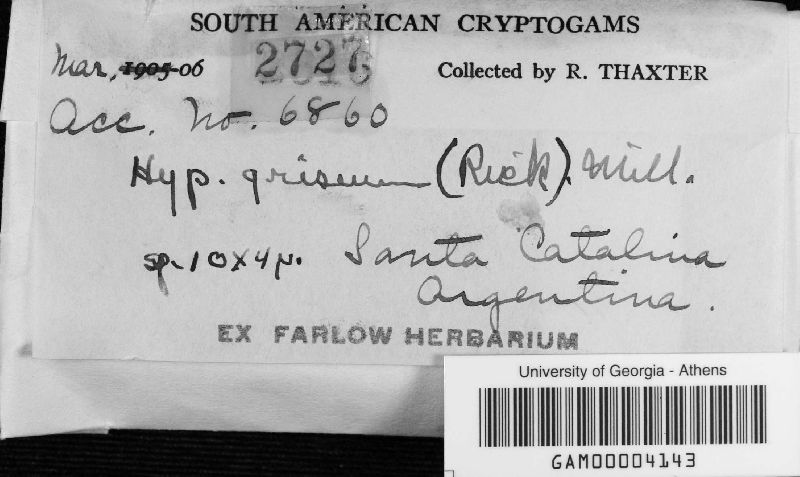 SOUTH AMERICAN CRYPTOGAMS
Mar, 1905-06 2727 Collected by R. THAXTER
Acc. No. 6860
Hyp. griseum (Rick). Mill.
sp. 10x4µ. Santa Catalina
Argentina.
EX FARLOW HERBARIUM
University of Georgia - Athens
GAM00004143